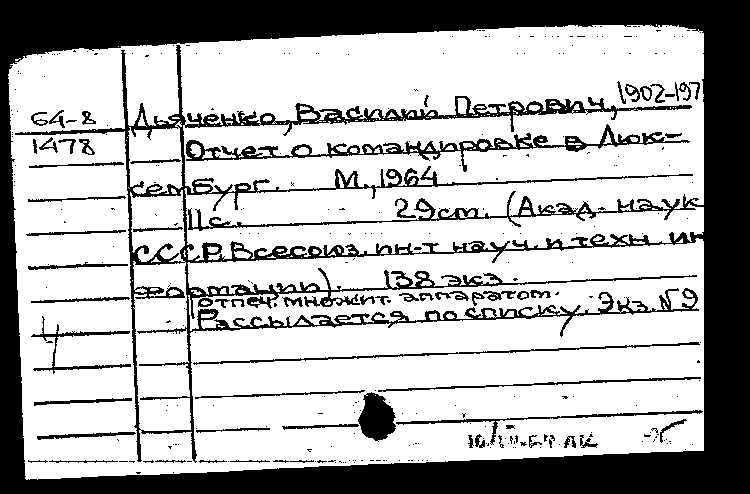 64-8 Дьяченко, Василий Петрович, 1902-197
1478 Отчет о командировке в Люк-
сембург. М., 1964
11 с. 29 см. (Акад. наук
СССР. Всесоюз. ин-т науч. и техн. ин
формации). 138 экз.
отпеч. множит. аппаратом.
Рассылается по списку. Экз. № 9
Ч